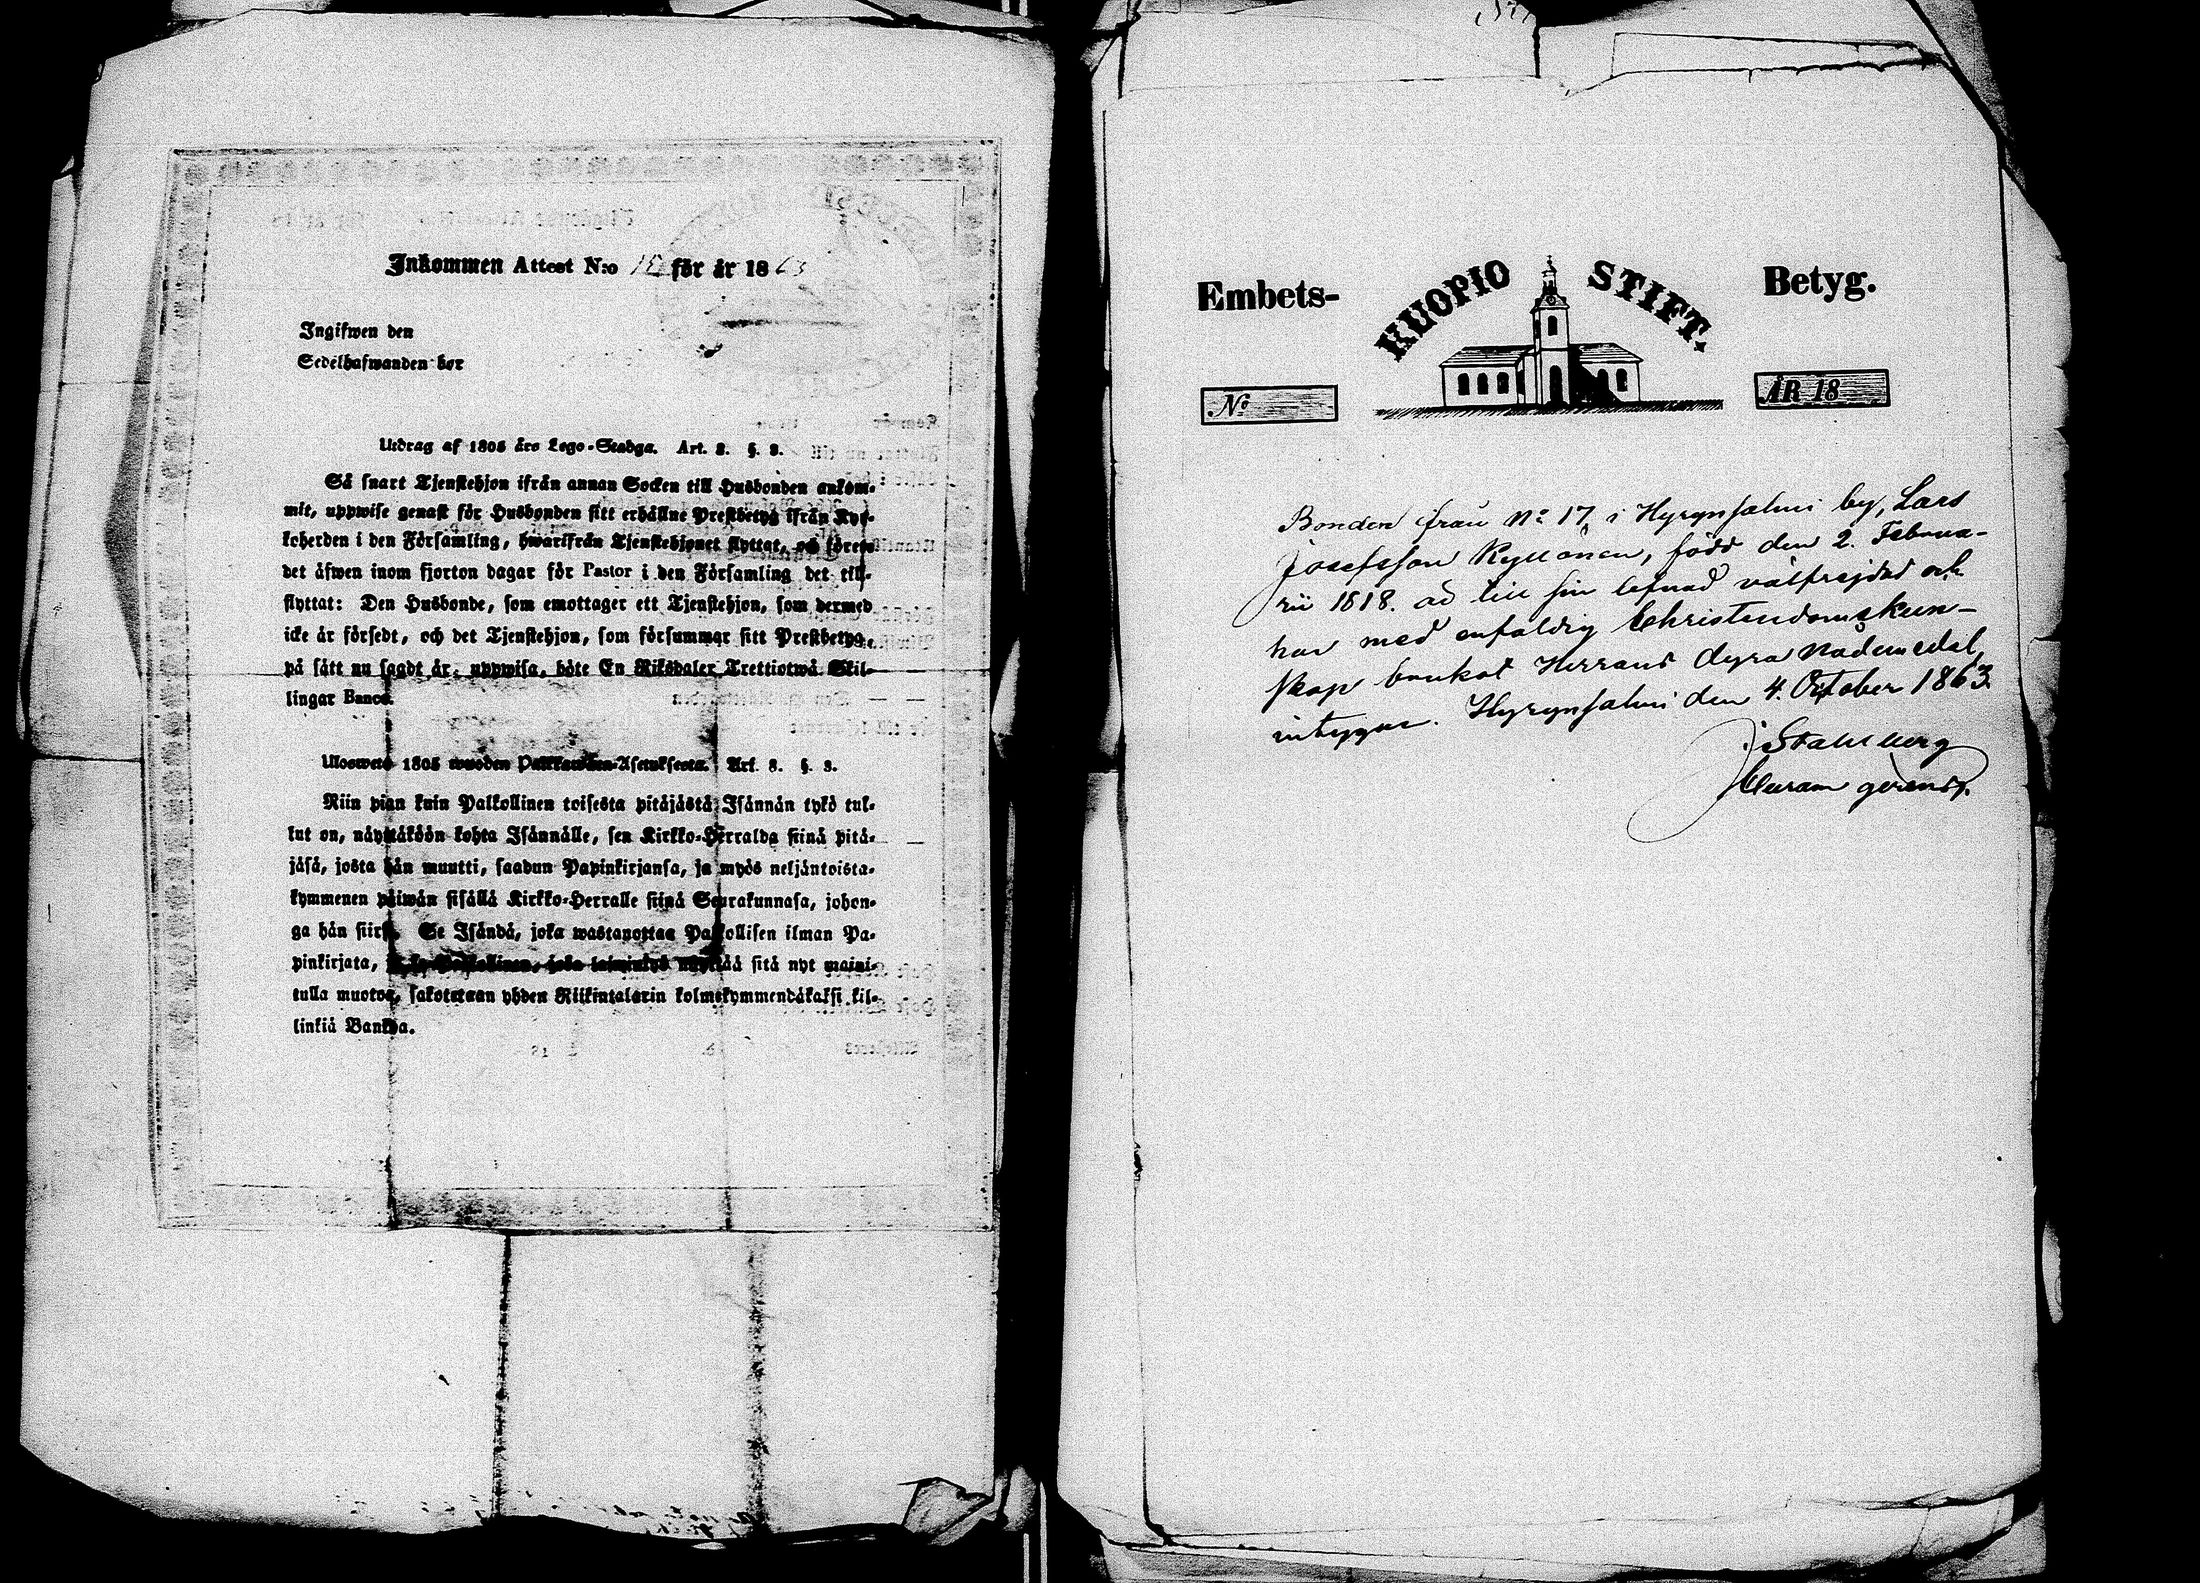 Inkommen Attest N:o för år 1863
Ingifwen den
Sedelhafwanden bor
Utdrag af 1805 års Lego-Stadga. Art. 8. §. 3.
Så snart Tjenstehjon ifrån annan Socken till Husbonden ankom-
mit, uppwise genast för Husbonden sitt erhållne Prestbetyg ifrån Kyr-
koherden i den Församling, hwarifrån Tjenstehjonet flyttat, och förete
det äfwen inom fjorton dagar för Pastor i den Församling det till-
flyttat: Den Husbonde, som emottager ett Tjenstehjon, som dermed
icke är försedt, och det Tjenstehjon, som försummar sitt Prestbetyg,
på sätt nu sagdt är, uppwisa, böte En Riksdaler Trettiotwå Skil-
lingar Banco.
Ulosweto 1805 wuoden Palkkawäen-Asetuksesta. Art. 8. §. 3.
Niin pian kuin Palkollinen toisesta pitäjästä Isännän tykö tul-
lut on, näyttäköön kohta Isännälle, sen Kirkko-Herralda siinä pitä-
jäsä, josta hän muutti, saadun Papinkirjansa, ja myös neljäntoista-
kymmenen päiwän sisällä Kirkko-Herralle siinä Seurakunnasa, johon-
ga hän siirsi. Se Isändä, joka wastanottaa Palkollisen ilman Pa-
pinkirjata, sitä nyt maini-
tulla muotoa, sakotetaan yhden Riikintalarin kolmekymmendäkaksi kil-
linkiä Bankoa.
Embets- KUOPIO STIFT. Betyg.
No ÅR 18
Bonden från No 17 i Hyrynsalmi by, Lars
Josefsson Kyllönen, född den 2. Februa-
rii 1818. är till sin lefnad välfrejdad och
har med enfaldig Christendomskun-
skap brukat Herrans dyra Nådemedel,
intygar. Hyrynsalmi den 4. October 1863.
J. Stahlberg
Curam gerens.